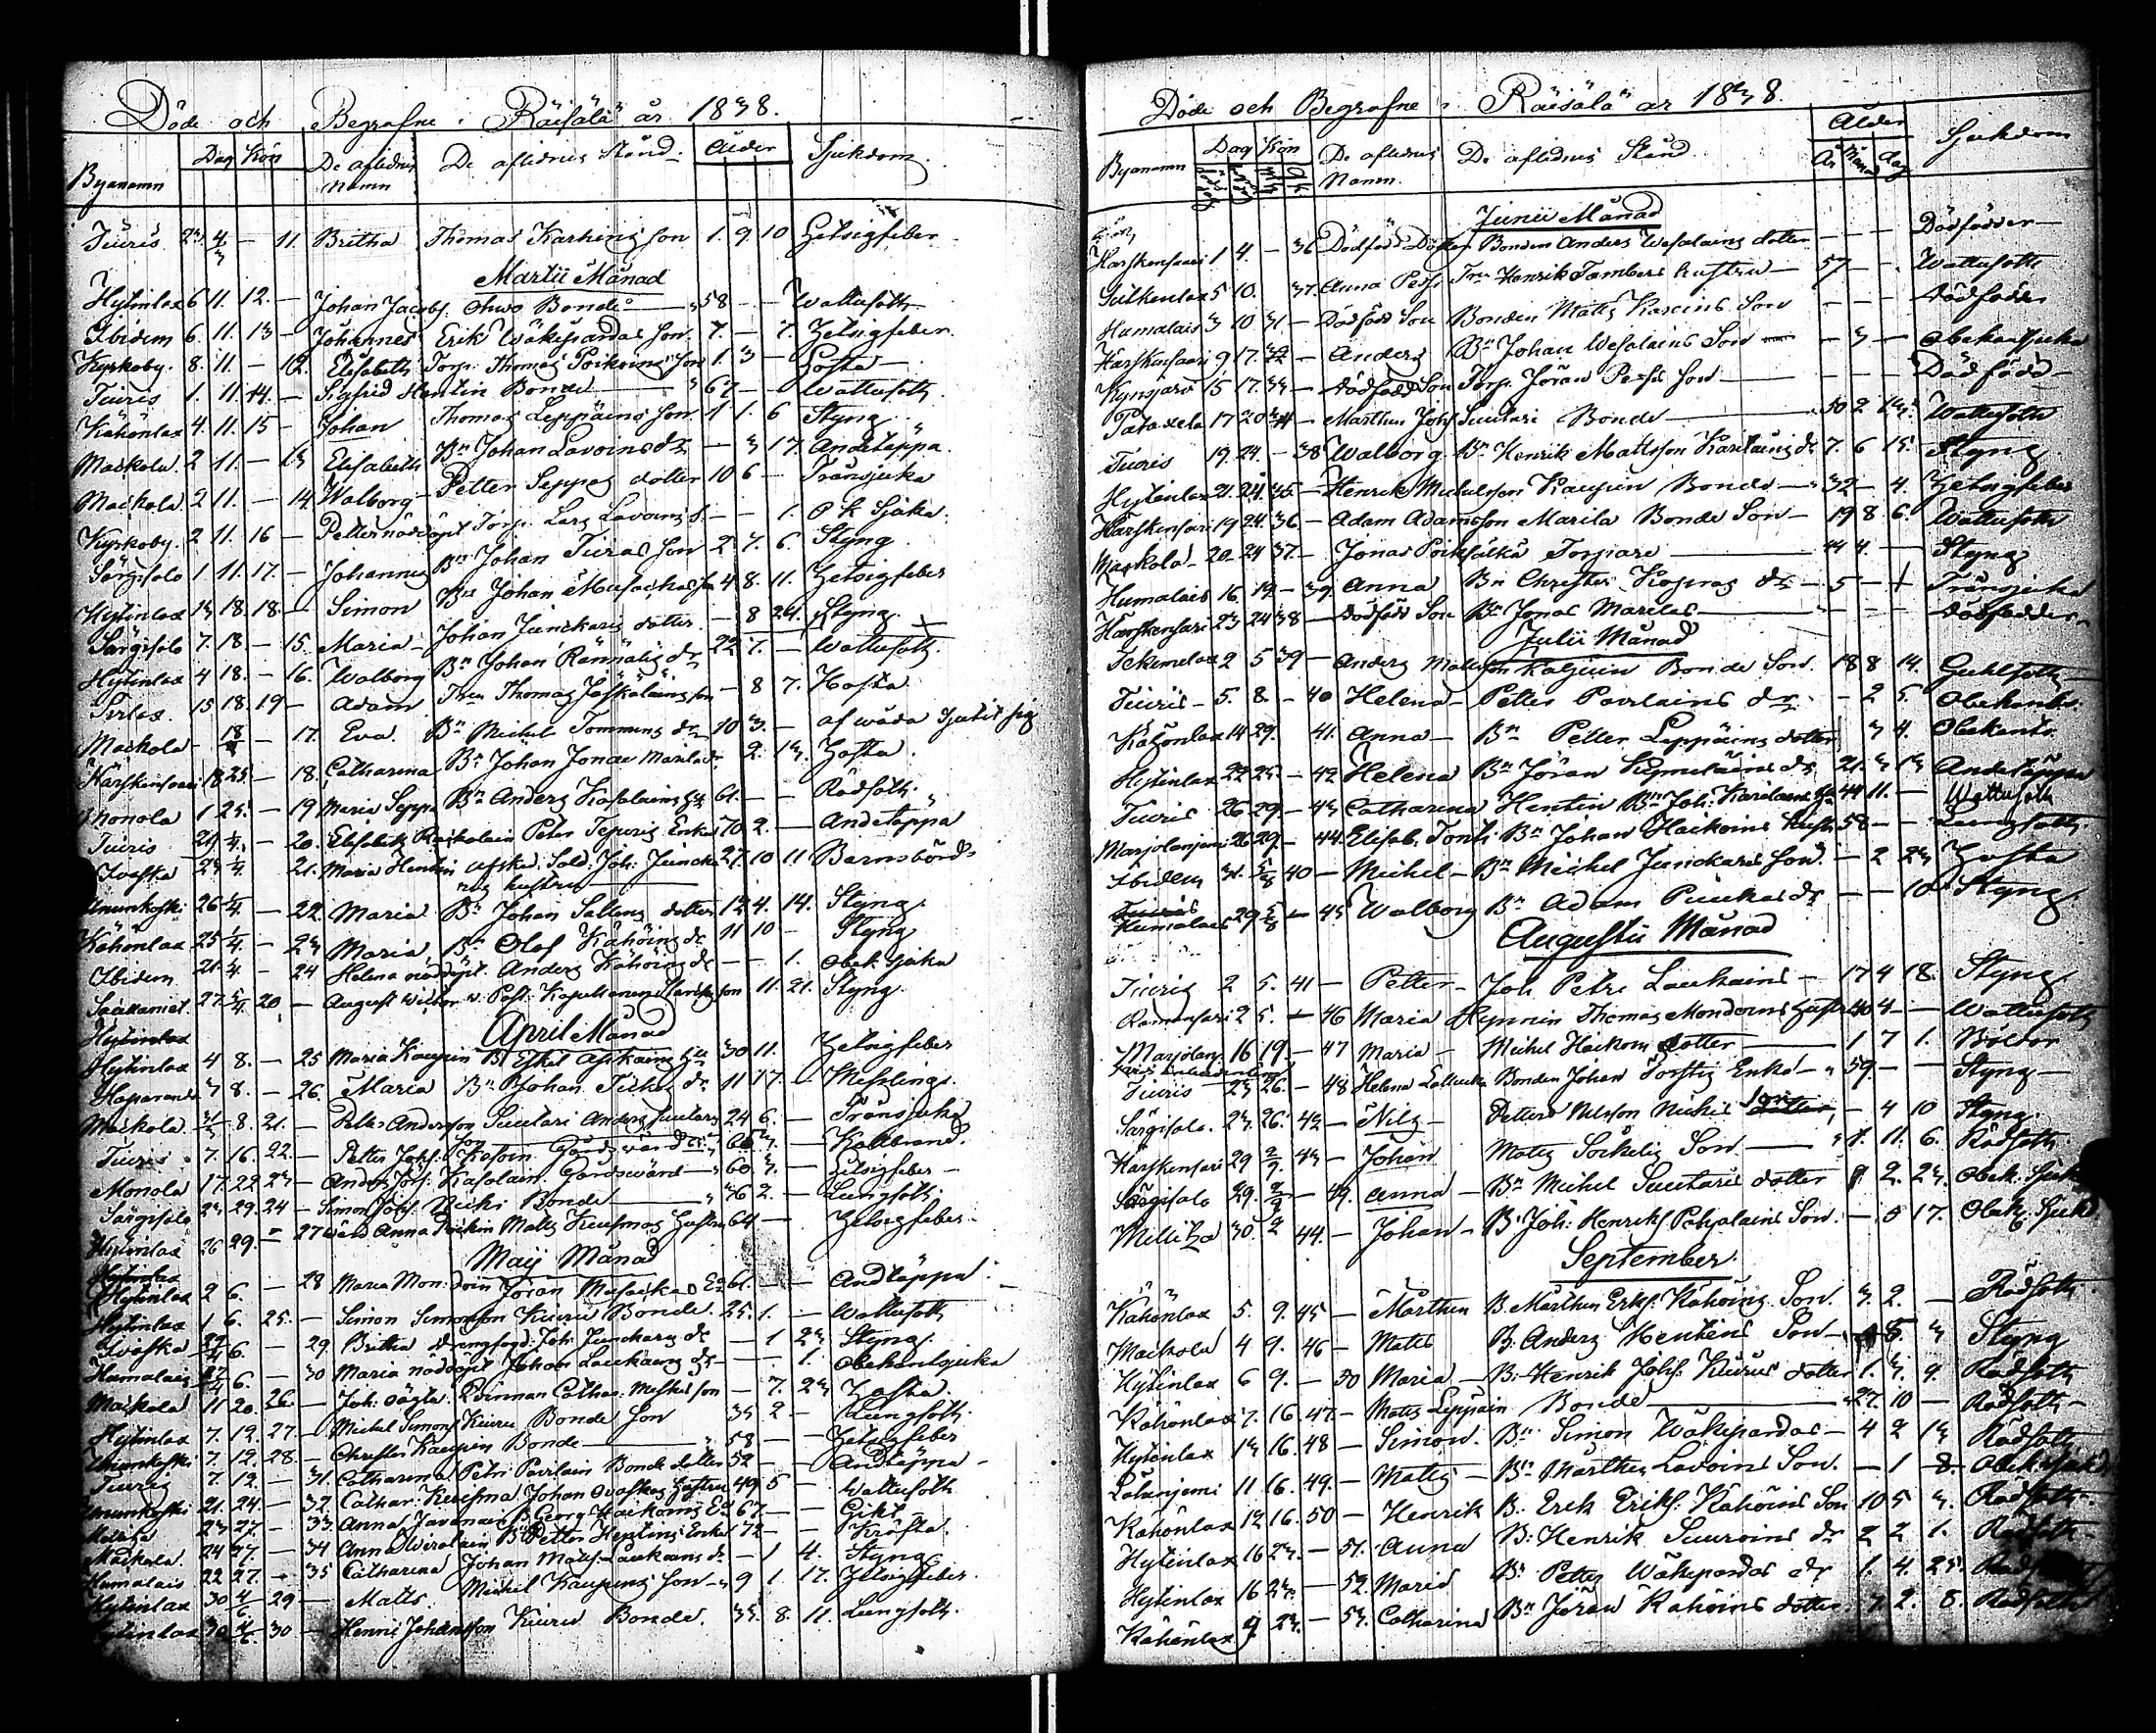 Döde och Begrafne i Räisälä år 1838.
Byanamn Dag Kön De aflednes Namn De aflidnes Stånd Ålder Sjukdom
Tiuris 23 4/3 — 11. Britha Thomas Karhing son 1. 9. 10 Hetsigfeber
Martii Månad
Hytinlax 6 11. 12. — Johan Jacobs. Bonde 58 — — Wattusoth
Ibidem 6. 11. 13 — Johannes Erik Wäkipardas son. 7. — 7. Hetsigfeber.
Kyrkoby. 8. 11. — 12. Elisabeth Torp. Thomas Poikoins son 1. 3 — Hosta —
Tiuris 1. 11. 14. — Sigfrid Hentin Bonde — 67 — — Wattusoth
Kähönlax 4. 11. 15 — Johan Thomas Leppäins son. 1 1. 6 Styng
Mackola. 2 11. — 13 Elisabeth Bn Johan Lavoins dr — 3 17. Andetäppa.
Mackola. 2 11. — 14. Walborg — Petter Seppes dotter 10 6 — Tränsjuka
Kyrkoby. 2 11. 16 — Petter nöddöpt Torp. Lars Lavoins s. — — 1. O. k. Sjuka.
Särgisalo 1 11. 17. — Johannes Bn Johan Tiuras son 2. 7. 6. Styng
Hytinlax 13 18. 18. — Simon Bn Johan Musackas son 4. 8. 11. Hetsigfeber
Särgisalo 7. 18 — 15. Maria — Johan Junckaris dotter. — 8 24. Styng.
Hytinlax 4 18. — 16. Walborg Bn Johan Rännälis dr 22 7. — Wattusoth.
15 18. 19 — Adam Thomas Jäskäläins son — 8 7. Hosta
Mackola — 18 — 17. Eva. Bn Michel Tommins dr 10 3. — af wåda
Kärskensaari 18 25. — 18. Catharina Bn Johan Jonae Marilas dr 2. 13. Hosta.
Monola 1 25. — 19 Maria Seppä Bn Anders Kasolains Hu 61. — — Rödsoth.
Tiuris 29 1/4. — 20. Elisabeth Peter Enka 70 2. — Andetäppa
Ivaska 23 1/4. 21. Maria Hentin afsked. Sold. Joh. Juncka- 27. 10 11 Barnsbörd.
ris hustru
Unnunkoski 26 1/4. — 22 Maria Bn Johan Sallens dotter 12 4. 14. Styng.
Kähönlax 25 1/4. — 23 Maria Bn Olof Kähöins dr 11 10 — Styng
Ibidem 21. 4 — 24 Helena nöddöpt. Anders Kähöins dr — — 1. obek. sjuka
27. 20 — August Wilhelm v. Past. Kapellanen son 11. 21. Styng.
April Månad
Hytinlax 4 8. — 25 Maria Kaupin Bn Eskel Hu 30 11. Hetsigfeber
Haparanda 3 8. — 26. Maria Bn Johan dr 11 17. — Messlings.
Mackola 8. 21. — Petter Andersson Suutari Anders Suutaris 24 6. — Tränsjuka
Tiuris 7. 16. 22. — Petter Johs. Gårdsvärd — Kallbrand.
Monola 17. 22. 23 — Anders Johs. Kasolain. Gårdswärd — 60. 3. — Hetsigfeber —
Särgisalo 23 29. 24 — Simon Johs. Bonde — 36 2. — Lungsoth.
Hytinlax 26 29. — 27 Anna Poikin Matts Kuismas Hustru 64 — Hetsigfeber.
Maij Månad
Hytinlax 2 6. — 28 Maria Mondoin Jöran Musackas Ea 61. — — Andtäppa.
Hytinlax 1 6. 25. — Simon Simonsson Kiuru Bonde. 25. 1. — Wattusoth
Ivaska 6. — 29. Britha drengfogd. Joh. Junckaris dr — 1 23 Styng.
Humalais 6. — 30 Maria nöddöpt Johan Laukains dr — — 1. obekantsjuka
Mackola 11 20. 26. — Joh: oägta Qvinnan Cathar: son — 7. 23 Hosta.
Hytinlax 7. 12. 27. — Michel Simons Kiuru Bonde son 35 2 — Lungsoth.
Unnunkoski 7. 12. 28. — Christer Kaupin Bonde — 58 — — Hetsigfeber
Tiuris 7. 12. — 31. Catharina Petri Pavilain Bonde dotter 52 — — Andtäppa —
Unnunkoski 21. 24. — 32. Cathar: Kuisma Johan Ovaskas hustru 49 5 — Wattusoth
23 27. — 33. Anna Javanain B. Georg Haikoins Ea 67. — Gikt
Mackola. 24 27. — 34 Anna Bn Petter Hentins Enka 72 — — Kräfta.
Humalais 22 27. — 35 Catharina Johan Matts. Laukains dr — 1 4. Styng
Hytinlax 30 4/6 29 — Matts. Michel Kaupins son — 9 1. 17. Hetsigfeber.
Hytinlax 30 4/6 30 — Henric Johansson Kiuru Bonde. 35. 8. 11. Lungsoth.
Döde och Begrafne i Räisälä år 1838.
Byanamn Dag Kön De aflednes Namn. De aflidnes Stånd. Ålder År Månad dag Sjukdom
Junii Månad
Kärskensaari 1 4. — 36 Dödfödd Dotter Bonden Anders Wesalains dotter — — — Dödfödder —
Sulkenlax 5 10. 37. Anna Perss. Henrik Tambers hustru — 57 — — Wattusoth
Humalais 3 10 31 — Dödfödd Son Bonden Matts Son — — — Dödfödder
Kärskensaari 9 17. 32 — Anders Bn Johan Wesalains Son — 3 — Obekantsjuka
Kynsjärvi 15 17. 33 — Dödfödd Son Torp. Jöran son — — — Dödfödd —
17 20 34 — Marthen Johs Suutari Bonde — 50 2 Wattusoth
Tiuris 19. 24. — 38 Walborg. Bn Henrik Mattsson Karilains dr 7. 6 15. Styng
Hytinlax 21. 24. 35 — Henrik Michelsson Kaupin Bonde — 32 — 4. Hetsigfeber
Kärskensari 19 24. 36 — Adam Adamsson Marila Bonde Son — 19 8 6. Wattusoth
Mackola — 20 24 37. — Jonas Poiksalka Torpare — 44 4. — Styng
Humalais 16 — 39 Anna Bn Christer dr — 5 — Tränsjuka
Kärskensari 23 24 38 — Dödfödd Son Bn Jonas Marilas — — — Dödfödder.
Julii Månad
2 5 39 — Anders Mattsson Kaljuin Bonde Son. 18 8 14. Guhlsoth
Tiuris — 5. 8. — 40 Helena — Petter Pavilains dr. — 2 5. Obekant.
Kähönlax 14 29. 41. Anna — Bn Petter Leppäins dotter 3 4. Obekant.
Hytinlax 22 25. — 42 Helena Bn Jöran dr 21. Andetäppa
Tiuris 26 29. — 43 Catharina Hentin Bn Joh: Karilains 44 11. — Wattusoth
Marjolanjemi 26 29. — 44. Elisab. Tonti Bn Johan Haikoins hustr. 58 — — Lungsoth.
Ibidem 31. 5/8 40 — Michel — Bn Michel Junckaris son. — 2 23 Hosta
Humalais 29 5/8 — 45 Walborg Bn Adam dr — — 10 Styng.
Augusti Månad
Tiuris 2 5. 41 — Petter — Joh. Petri Laukains — 17 4 18. Styng.
Ramonsari 2 5. — 46 Maria Hynnin Thomas Mondoins hustru 40 4 — Wattusoth
Marjolan. 16 19. — 47 Maria — Michel Haikoins dotter — 1 7 1. Böldor
Tiuris 23 26. — 48 Helena Bonden Johan Torstis Enka — 59 — — Styng —
Särgisalo. 23. 26. 42 — Nils — Petters Nilsson Son — 4 10 Styng.
Kärskensari 29 2/9. 43 — Johan Matts Sockelis Son — 1. 11. 6. Rödsoth
Särgisalo 29. 2/9 — 49. Anna — Bn Michel Suutaris dotter 2. 23. Obek. Sjuka
30. 2 44. — Johan — B. Joh: Henriks Pohjolains Son. — 5 17. Obek. Sjuk.
September.
Kähönlax 5. 9. 45 — Marthen B. Marthen Eriks. Kähöins Son. 3. 2. — Rödsoth
Mackola 4 9. 46 — Matts B. Anders Hentins Son — 5. 3 Styng
Hytinlax 6 9. — 50 Maria — B: Henrik Johs. Kiurus dotter 1. 3. 9. Rödsoth
Kähönlax 7. 16. 47. — Matts Leppäin Bonde — 27. 10 — Rödsoth —
Hytinlax 13 16. 48 — Simon. Bn Simon Wäkipardas — 4 2 13 Rödsoth
11 16. 49. — Matts — Bn Marthen Lavoins Son. — 1 8. Obek. sjuka
Kähönlax 12 16. 50 — Henrik B. Erik Eriks. Kähöins Son 10 5 3. Rödsoth.
Hytinlax 16 23. — 51. Anna B: Henrik Suuroins dr 2 2 1. Rödsoth —
Hytinlax 16 23. — 52. Maria Bn Petter Wäkipardas dr 1. 4. 25. Rödsoth
Kähönlax 9. 23. — 53. Catharina Bn Jöran Kähöins dotter 7. 2. 8. Rödsoth